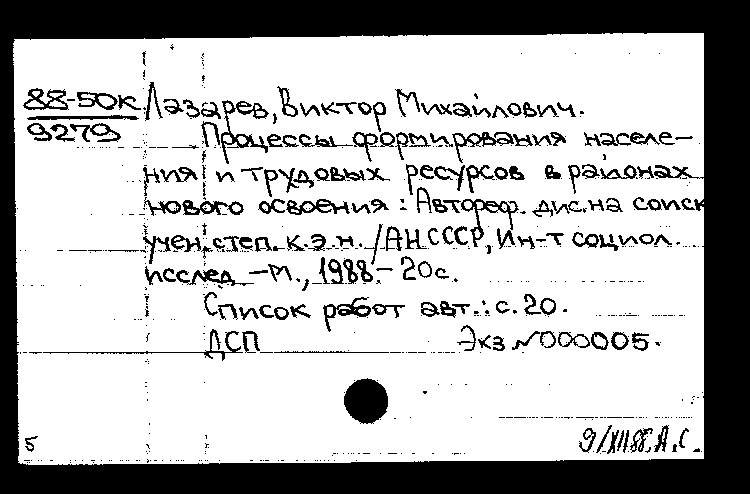 88-50к Лазарев, Виктор Михайлович.
9279 Процессы формирования населе-
ния и трудовых ресурсов в районах
нового освоения : Автореф. дис. на соиск
учен. степ. к.э.н. /АН СССР, Ин-т социол.
исслед. – М., 1988. – 20с.
Список работ авт.: с. 20.
ДСП Экз №000005.
5 9/XII88. А.С.